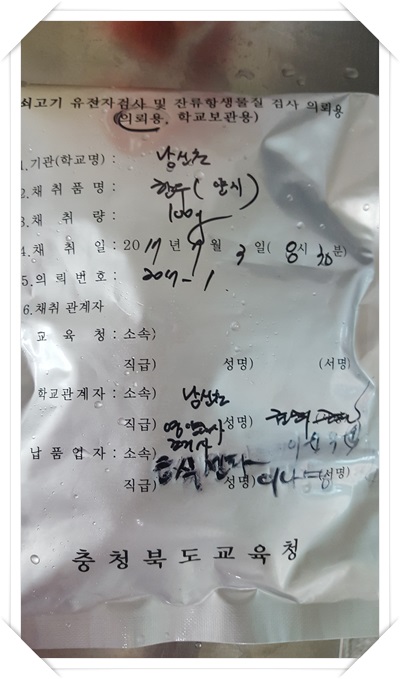 쇠고기 유전자검사 및 잔류항생물질 검사 의뢰용
(의뢰용, 학교보관용)
1.기관(학교명) : 남신초
2.채취품명 : 한우(안시)
3.채 취 량 : 100g
4.채 취 일 : 2017년 월 3일( 8시 30분)
5.의뢰번호 : 2017-1
6.채취 관계자
교 육 청 : 소속)
직급) 성명) (서명)
학교관계자 : 소속) 남신초
직급) 영양교사 성명)
납 품 업 자 : 소속)
직급) 성명) (서명)
충청북도교육청